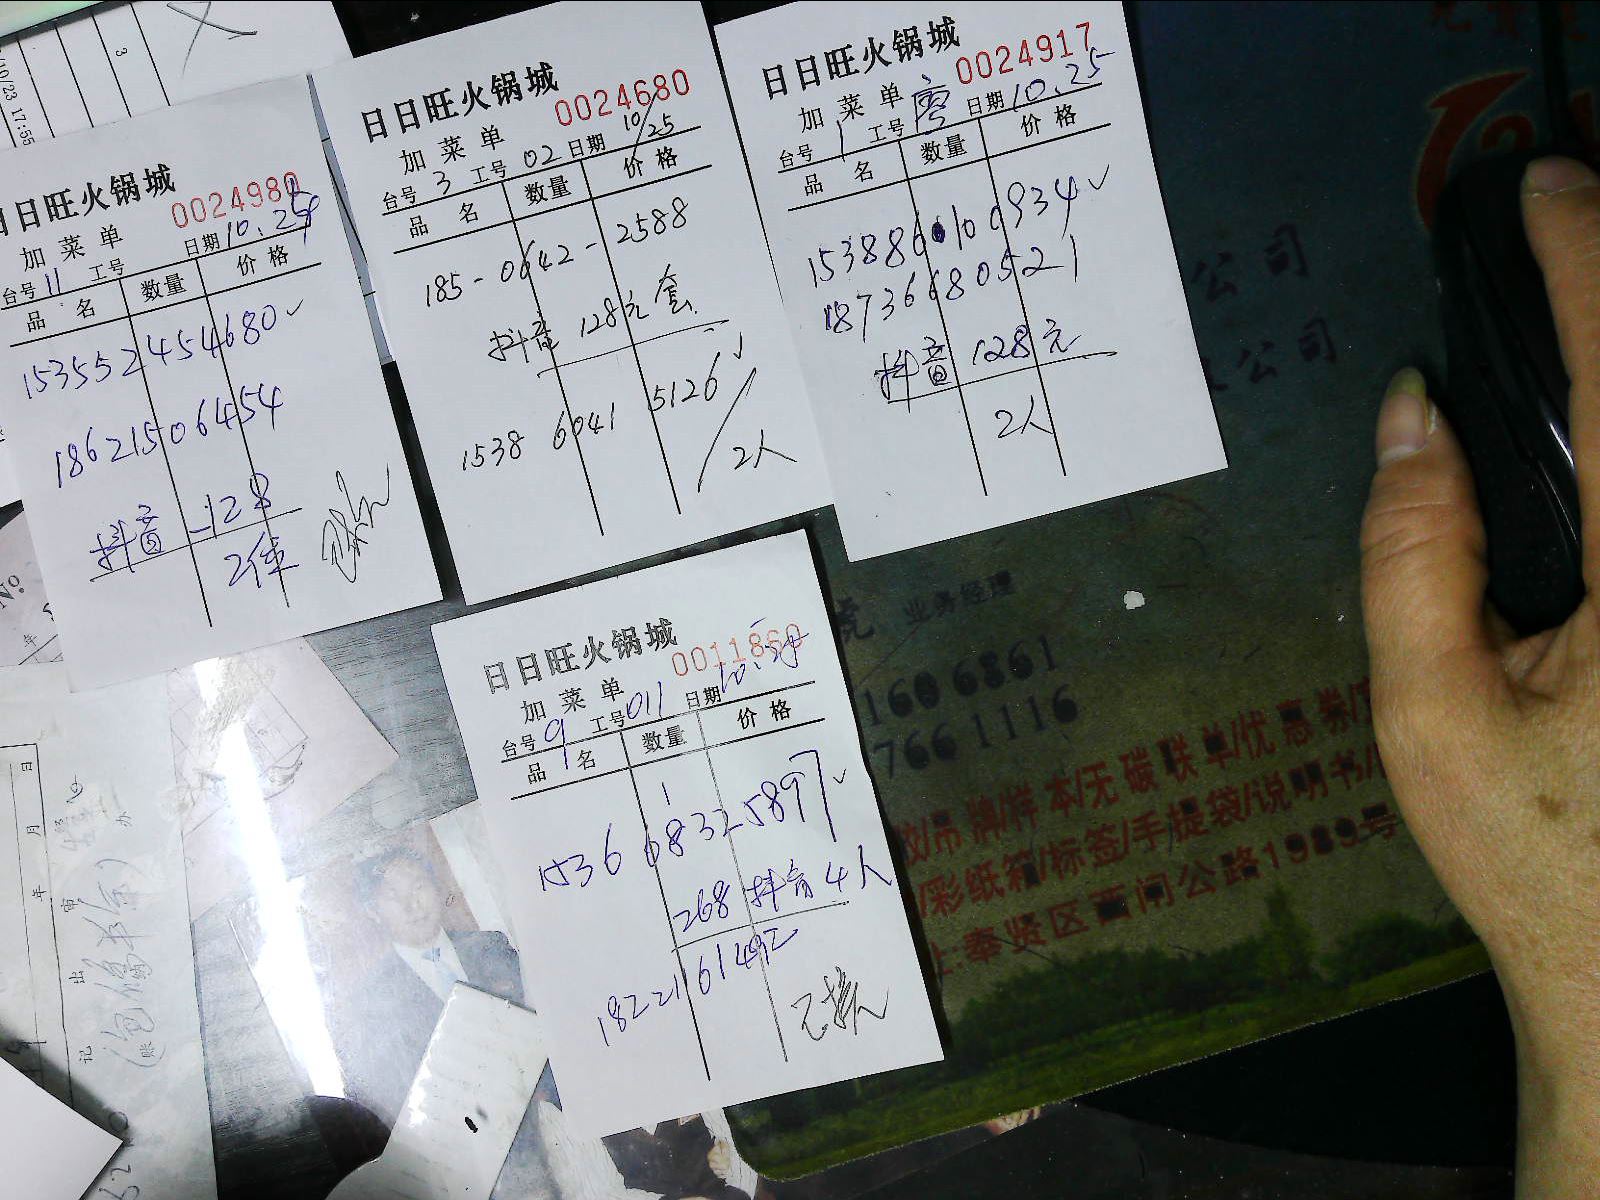 日日旺火锅城
0024980
加菜单
日期 10.25
台号 11 工号
品 名 数量 价格
153552454680 ✓
18621506454
抖音 -128
2.
日日旺火锅城
0024680
加菜单
台号 3 工号 02 日期 10/25
品 名 数量 价格
185-0642-2588
抖音 128元套
1538 6041 5126 ✓
2人
日日旺火锅城
0024917
加菜单
台号 1 工号 廖 日期 10.25
品 名 数量 价格
153886 100934 ✓
18736680521
抖音 128元
2人
日日旺火锅城
0011860
加菜单
台号 9 工号 011 日期
品 名 数量 价格
1
1536 68325897 ✓
268 抖音 4人
1822116149
已接
10/23 17:55
3
No
年
日
月
年
审
办
出
记
账
公司
公司
业务经理
1606861
7661116
/吊牌/样本/无碳联单/优惠券/
/彩纸箱/标签/手提袋/说明书/
址:奉贤区西闸公路1989号